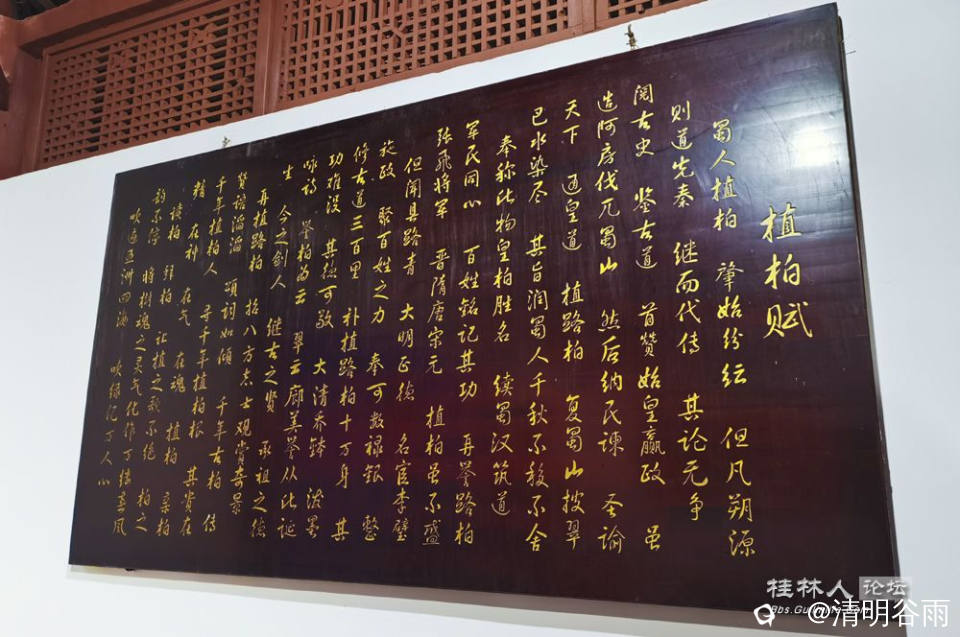 植柏赋
蜀人植柏 肇始纷纭 但凡朔源
则道先秦 继而代传 其论无争
阅古史 鉴古道 首赞始皇嬴政 虽
造阿房伐兀蜀山 然后纳民谏 圣谕
天下 通皇道 植路柏 复蜀山披翠
已水染尽 其旨润蜀人千秋不移不舍
奉称此物皇柏胜名 续蜀汉筑道
军民同心 百姓铭记其功 再誉路柏
张飞将军 晋隋唐宋元 植柏虽不盛
但闻县路青 大明正德 名宦李璧
施政 聚百姓之力 奉可数禄银 整
修古道三百里 补植路柏十万身 其
功难没 其德可敬 大清乔钵 泼墨
咏诗 誉柏为云 翠云廊美誉从此诞
生 今之剑人 继古之贤 承祖之德
再植路柏 抬八方志士观赏奇景
贤谐滔滔 颂词如倾 千年古柏 传
千年植柏人 寻千年植柏根 其贵在
精 在神 在气 在魂 植柏 亲柏
读柏 拜柏 让植之歌不绝 柏之
韵不停 将树魂之灵气化作丁缕春风
吹遍五洲四海 吹绿亿丁人心
桂林人论坛
Bbs.Guilin
@清明谷雨